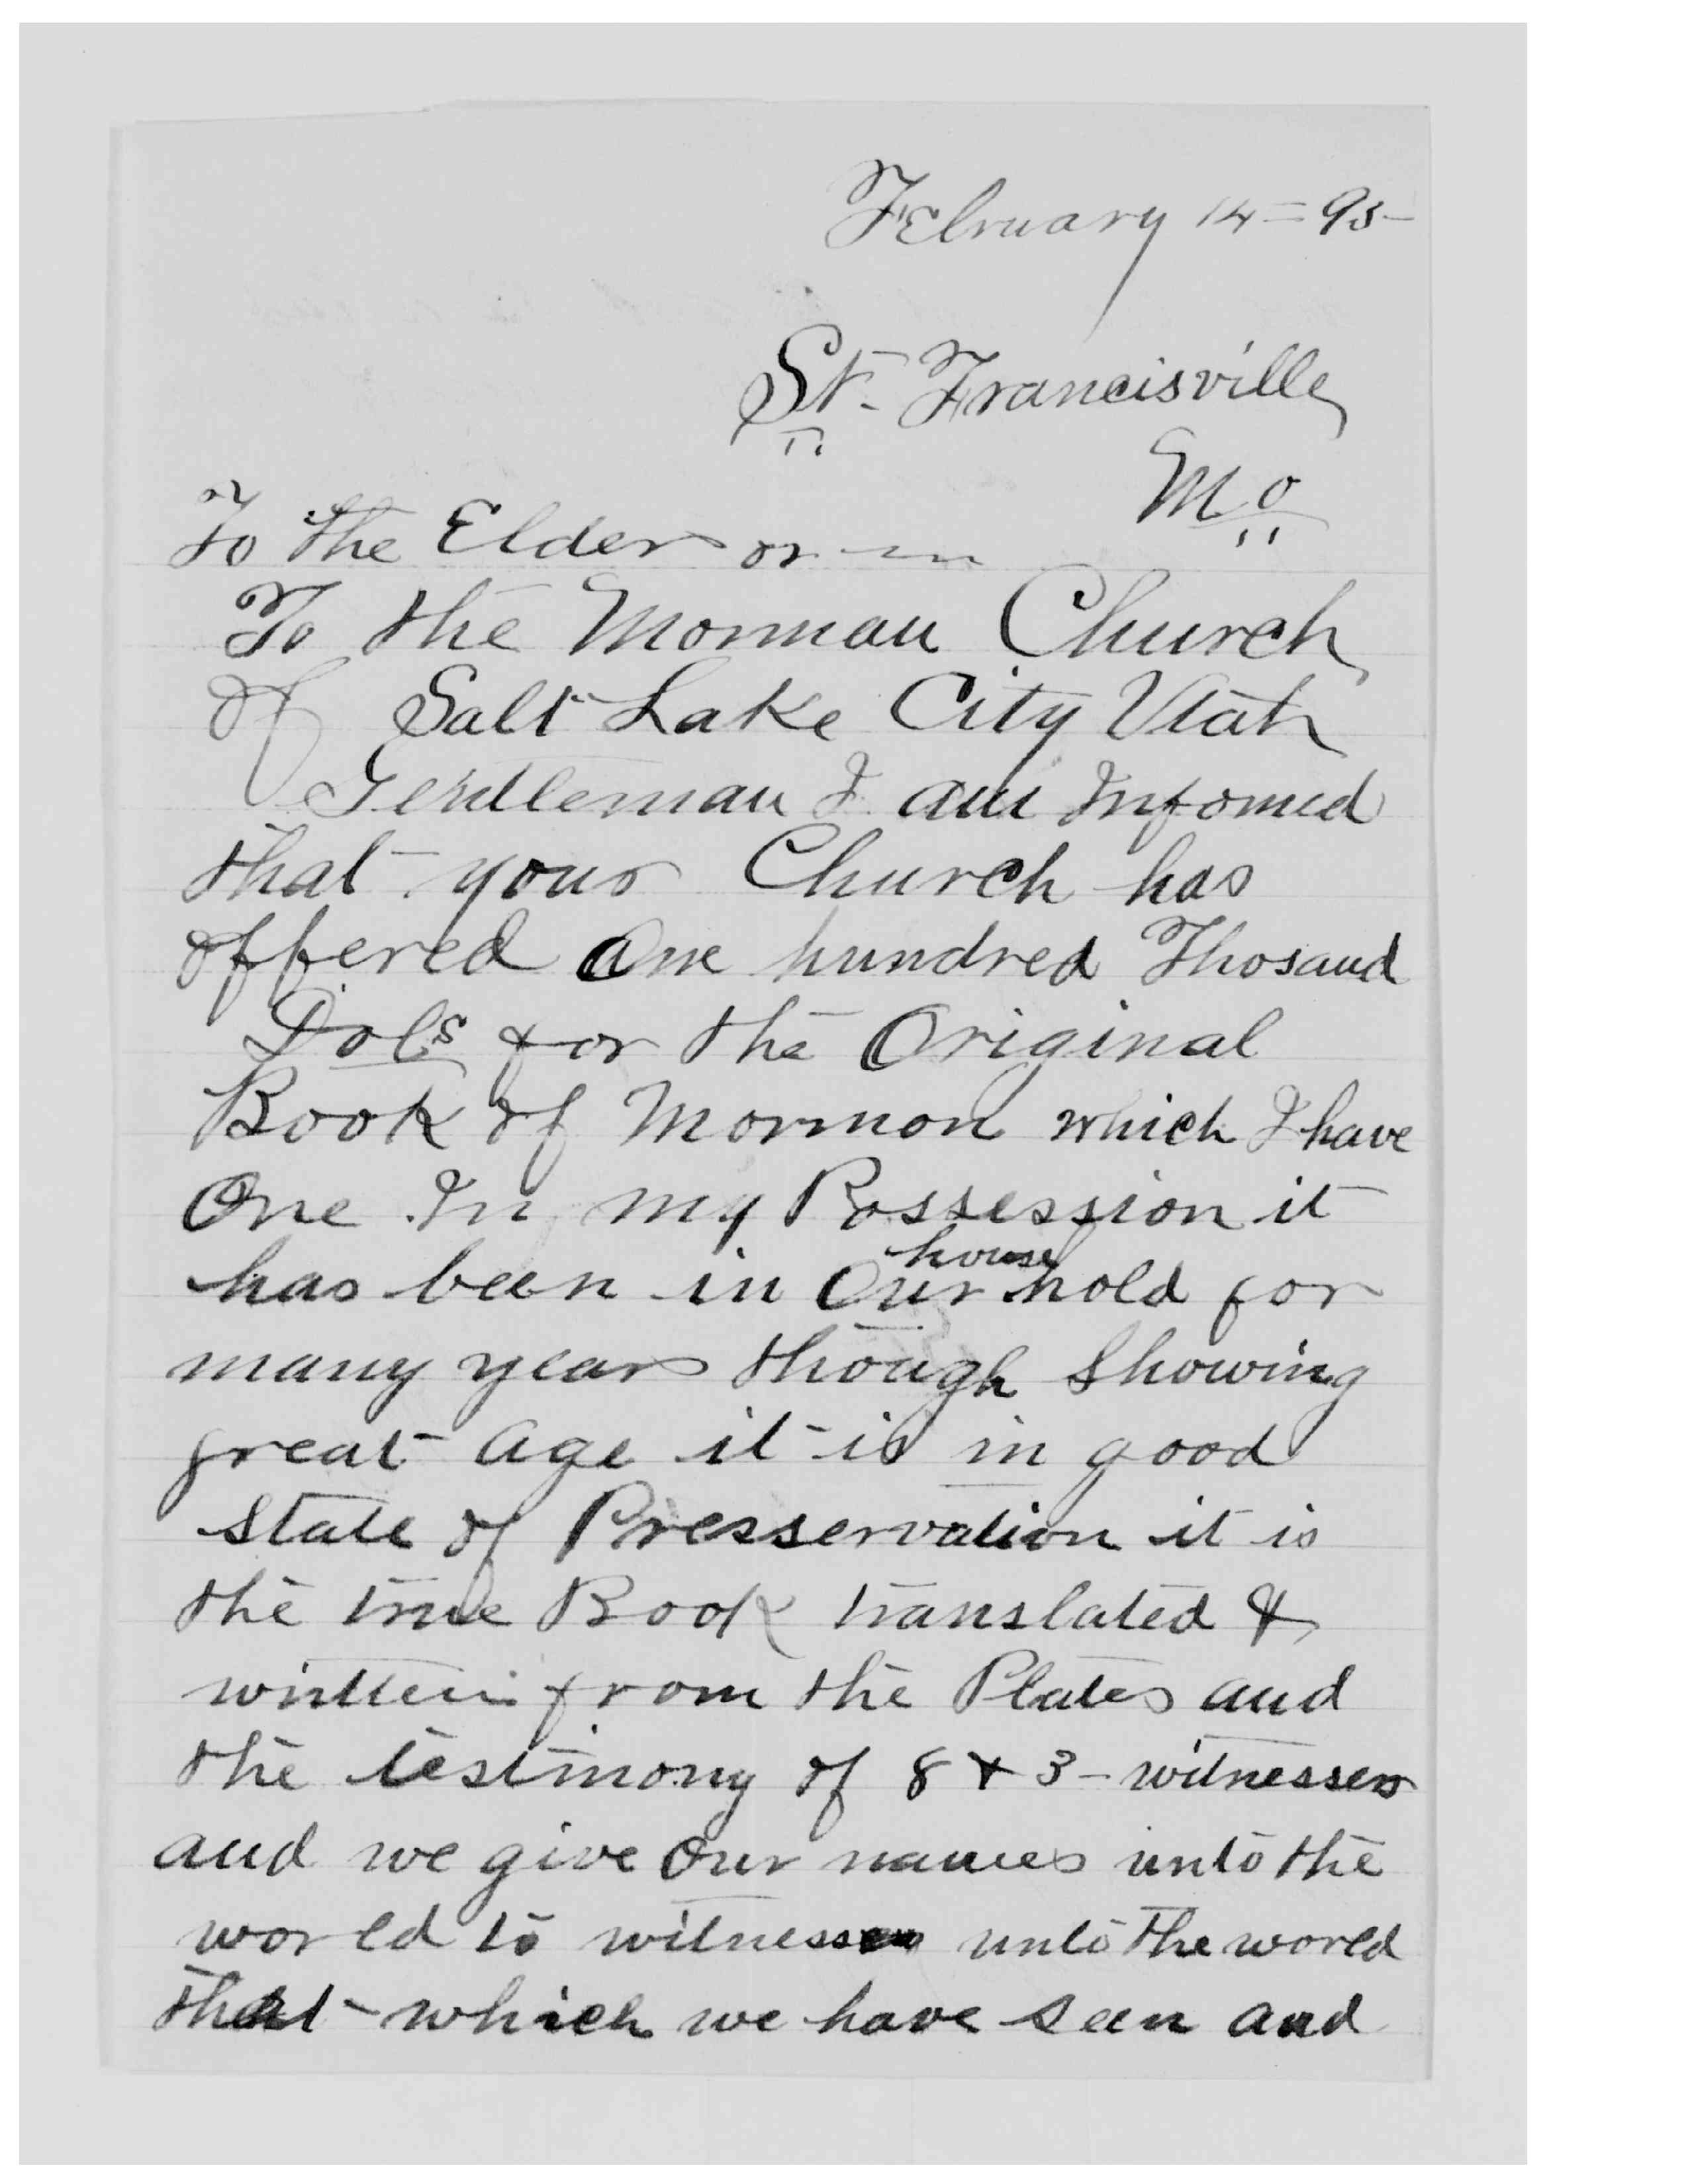 February 14 = 95-
St. Francisville
Mo
To the Elder or
To the Morman Church
of Salt Lake City Utah
Gentleman I am Infomed
that your Church has
offered One hundred Thosand
Dols for the Original
Book of Mormon which I have
One In my Possession it
has been in Our household for
many years though Showing
great age it is in good
state of Presservation it is
the true Book translated &
written from the Plates and
the testimony of 8 & 3 - witnesses
and we give Our names unto the
world to witness unto the world
that which we have seen and